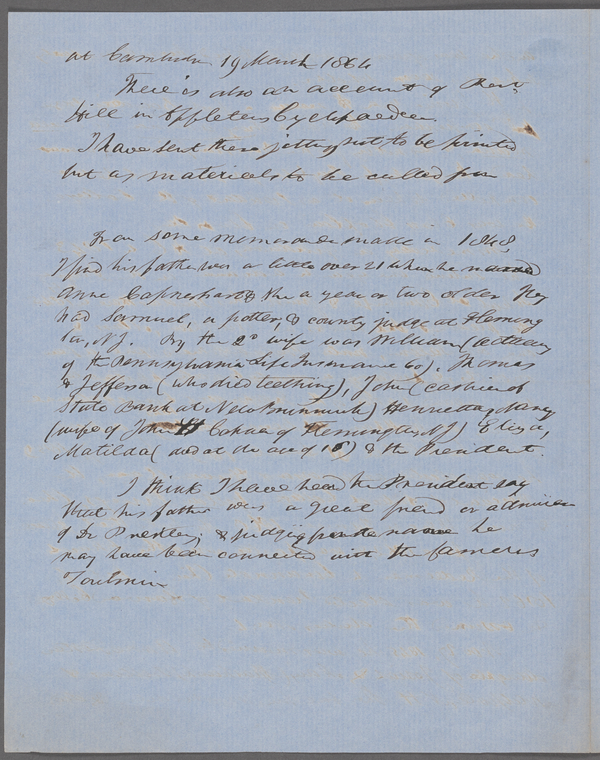 at Cambridge 19 March 1864
There is also an account of Revd.
Hill in Appletons Cyclopaedia.
I have sent these jottings not to be printed
but as materials to be culled from
From some memoranda made in 1848,
I find his father was a little over 21 when he married
Anne & she a year or two older They
had Samuel, a potter, & county judge at Fleming
ton, N.J. By the 2d wife was William (actuary
of the Pennsylvania Life Insurance Co), Thomas
& Jefferson (who died teething), John (cashier of
State Bank at New Brunswick) Henrietta, Mary
(wife of John of Flemington, N.J.) Eliza,
Matilda (died at the age of 18) & the President.
I think I have heard the President say
that his father was a great friend or admirer
of Dr Priestley; & judging from the name he
may have been connected with the famous
Toulmin